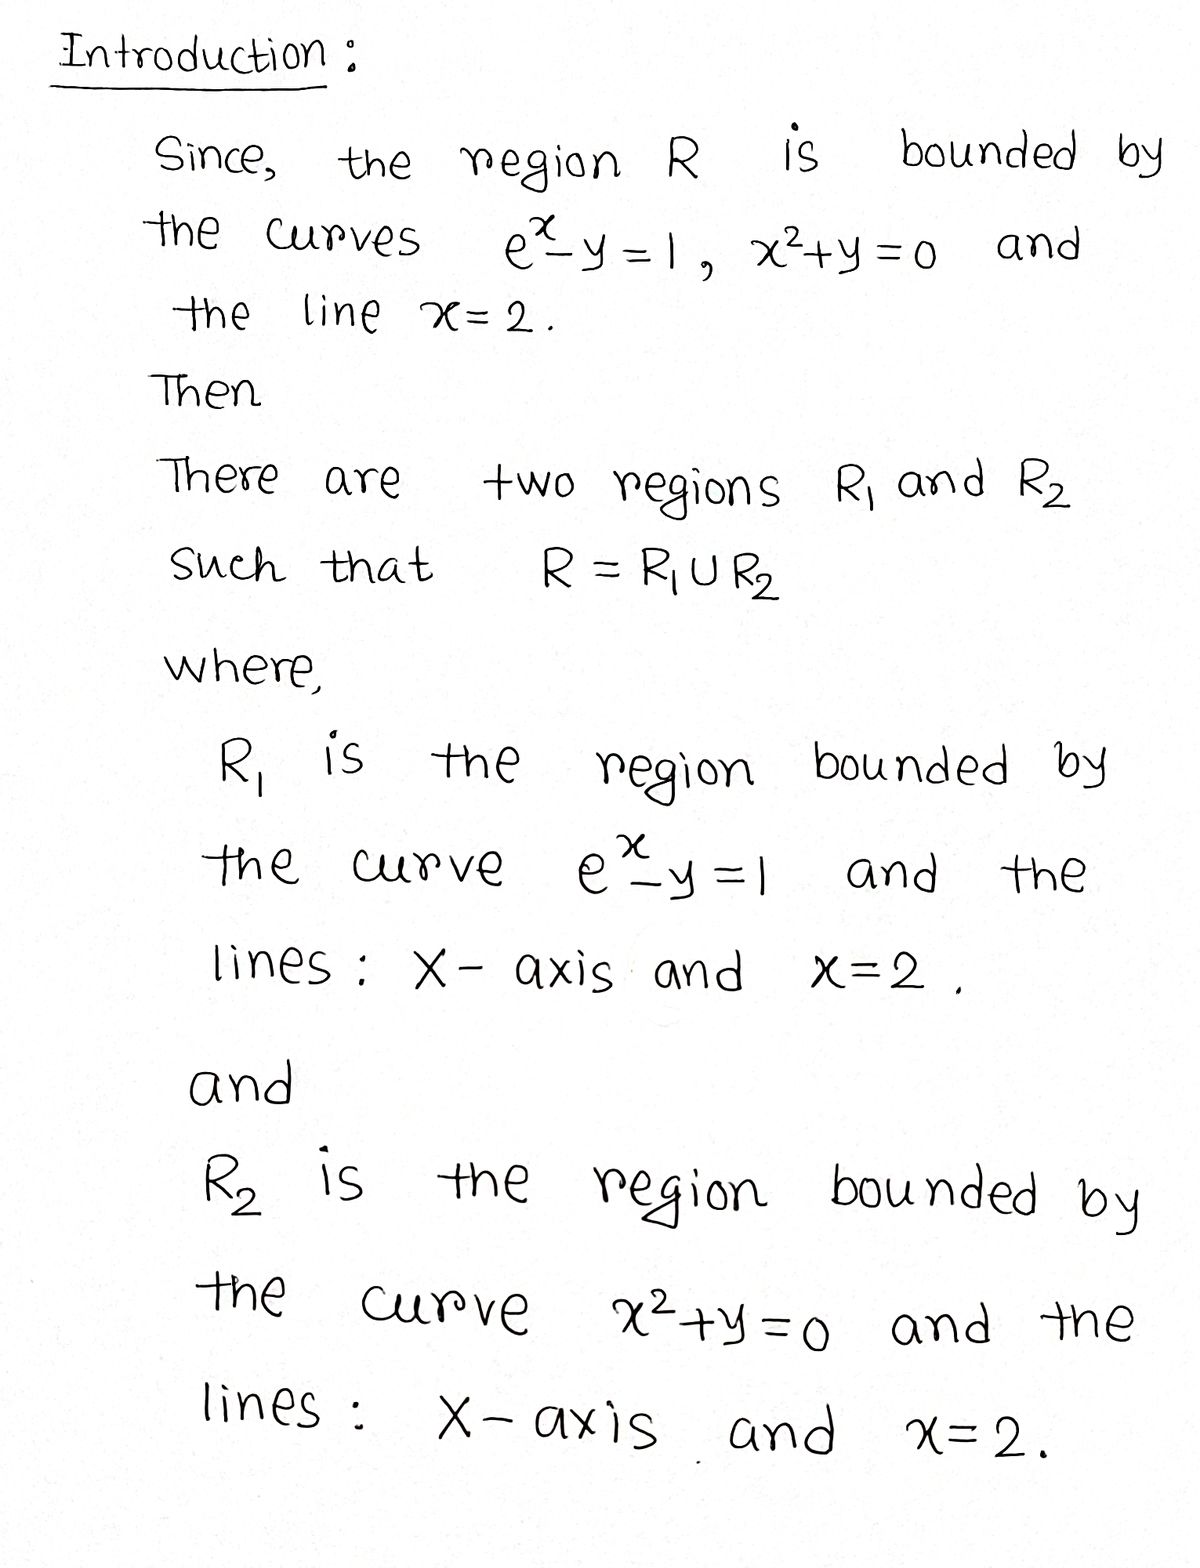 Introduction :
Since, the region R is bounded by
the curves eˣ-y=1, x²+y=0 and
the line x=2.
Then
There are two regions R₁ and R₂
Such that R = R₁ U R₂
where,
R₁ is the region bounded by
the curve eˣ-y=1 and the
lines : X- axis and x=2.
and
R₂ is the region bounded by
the curve x²+y=0 and the
lines : X- axis and x=2.